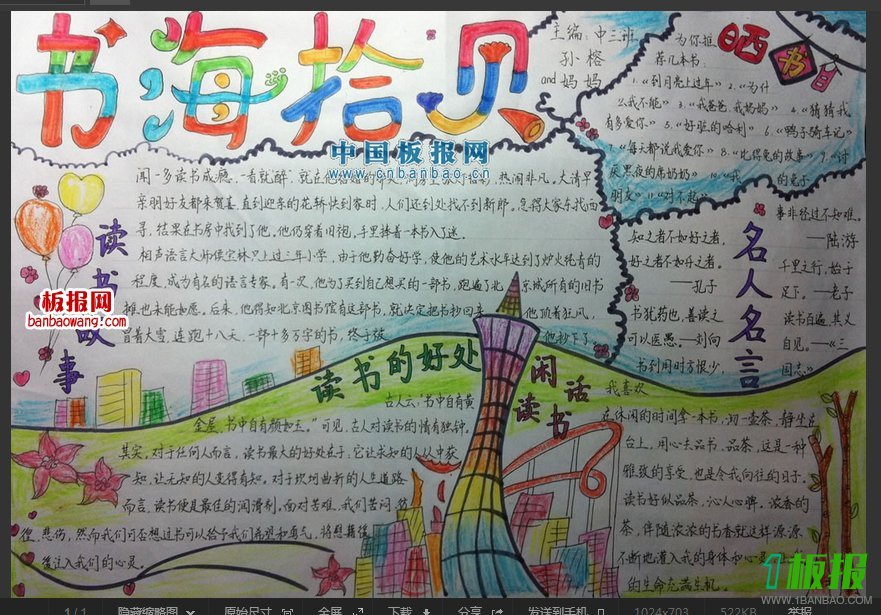 书海拾贝
主编:中三班
孙榕
and妈妈
为你推
荐几本书:
晒
书
1.“到月亮上过年”2.“为什
么我不能”3.“我爸爸 我妈妈”4.“猜猜我
有多爱你”5.“好脏的哈利”6.“鸭子骑车记”
7.“每天都说我爱你”8.“比得兔的故事”9.“讨
中国板报网
www.cnbanbao.cn
读书故事
板报网
banbaowang.com
闻一多读书成瘾,一看就醉,就在他结婚的那天,洞房里张灯结彩,热闹非凡。大清早
亲朋好友都来贺喜,直到迎亲的花轿快到家时,人们还到处找不到新郎。急得大家东找西
寻,结果在书房中找到了他。他仍穿着旧袍,手里捧着一本书入了迷。
相声语言大师侯宝林只上过三年小学,由于他勤奋好学,使他的艺术水平达到了炉火纯青的
程度,成为有名的语言专家。有一次,他为了买到自己想买的一部书,跑遍了北京城所有的旧书
摊也未能如愿。后来,他得知北京图书馆有这部书,就决定把书抄回来。他顶着狂风,
冒着大雪,连跑十八天,一部十多万字的书,终于被他抄下了
名人名言
知之者不如好之者,
好之者不如乐之者。
——孔子
书犹药也,善读之
可以医愚。—刘向
书到用时方恨少,
事非经过不知难。
——陆游
千里之行,始于
足下。—老子
读书百遍,其义
自见。—《三
国志》
读书的好处
古人云:“书中自有黄
金屋,书中自有颜如玉。”可见,古人对读书的情有独钟。
其实,对于任何人而言,读书最大的好处在于:它让求知的人从中获
知,让无知的人变得有知。对于坎坷曲折的人生道路
而言,读书便是最佳的润滑剂。面对苦难,我们苦闷、彷
徨、悲伤,
闲话读书
我喜欢
在休闲的时间拿一本书,沏一壶茶,静坐在
台上,用心去品书,品茶,这是一种
雅致的享受,也是令我向往的日子。
读书好似品茶,沁人心脾。浓香的
茶,伴随浓浓的书香就这样源源
不断地灌入我的身体和心灵
的生命充满生机。
後注入我们的心灵。
1板报
WWW.1BANBAO.COM
1 / 1 隐藏缩略图 原始尺寸 全屏 下载 分享 发送到手机 1024x703 522KB 举报